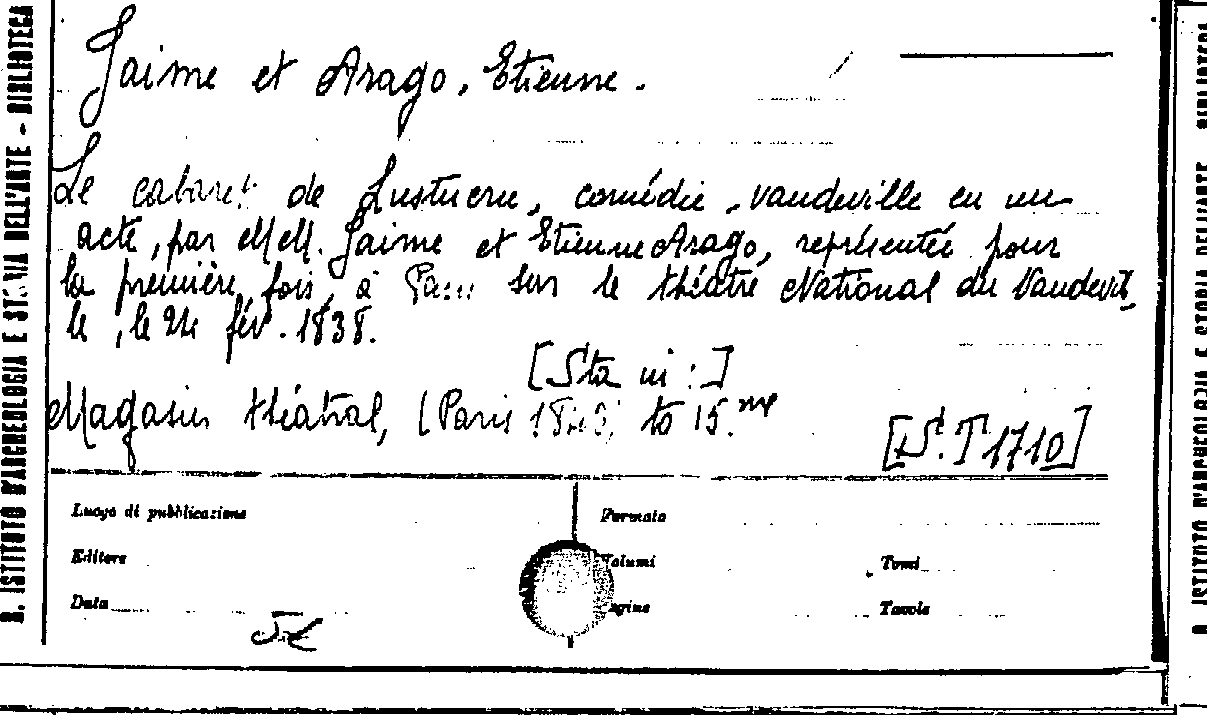 Jaime et Arago, Etienne.
Le cabaret de Lustucru, comédie-vaudeville en un
acte, par MM. Jaime et Etienne Arago, représentée pour
la première fois, à Paris sur le théâtre National du Vaudevil,
le, le 24 fév. 1838.
[Sta in:]
Magasin théatral, (Paris to 15.me
[S.T 1710]
Luogo di pubblicazione
Formato
Editore
Volumi
Tomi
Data
Pagine
Tavole
R. ISTITUTO D'ARCHEOLOGIA E STORIA DELL'ARTE - BIBLIOTECA
R. ISTITUTO D'ARCHEOLOGIA E STORIA DELL'ARTE BIBLIOTECA